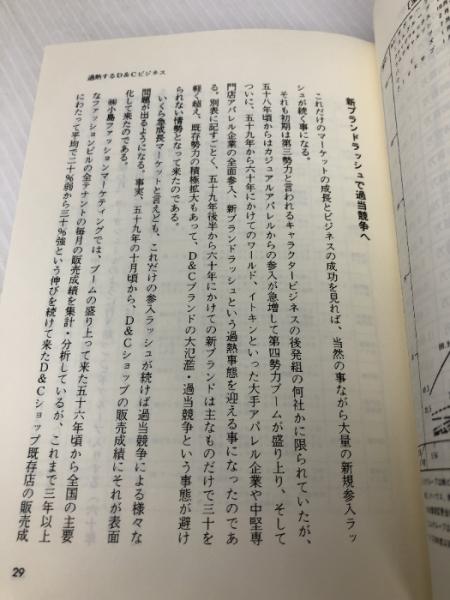 過熱するD&Cビジネス
新ブランドラッシュで過当競争へ
これだけのマーケットの成長とビジネスの成功を見れば、当然の事ながら大量の新規参入ラッ
シュが続く事になる。
それも初期は第三勢力と言われるキャラクタービジネスの後発組の何社かに限られていたが、
五十八年頃からはカジュアルアパレルからの参入が急増して第四勢力ブームが盛り上り、そして
ついに、五十九年から六十年にかけてのワールド、イトキンといった大手アパレル企業や中堅専
門店アパレル企業の全面参入、新ブランドラッシュという過熱事態を迎える事になったのであ
る。別表に記すごとく、五十九年後半から六十年にかけての新ブランドは主なものだけで三十を
軽く超え、既存勢力の積極拡大もあって、D&Cブランドの大氾濫・過当競争という事態が避け
られない情勢となって来たのである。
いくら急成長マーケットと言えども、これだけの参入ラッシュが続けば過当競争による様々な
問題が出るようになる。事実、五十九年の十月頃から、D&Cショップの販売成績にそれが表面
化して来たのである。
㈱小島ファッションマーケティングでは、ブームの盛り上って来た五十六年頃から全国の主要
なファッションビルの全テナントの毎月の販売成績を集計・分析しているが、これまで三年以上
にわたって平均で二十%弱から三十%強という伸びを続けて来たD&Cショップ既存店の販売成
29